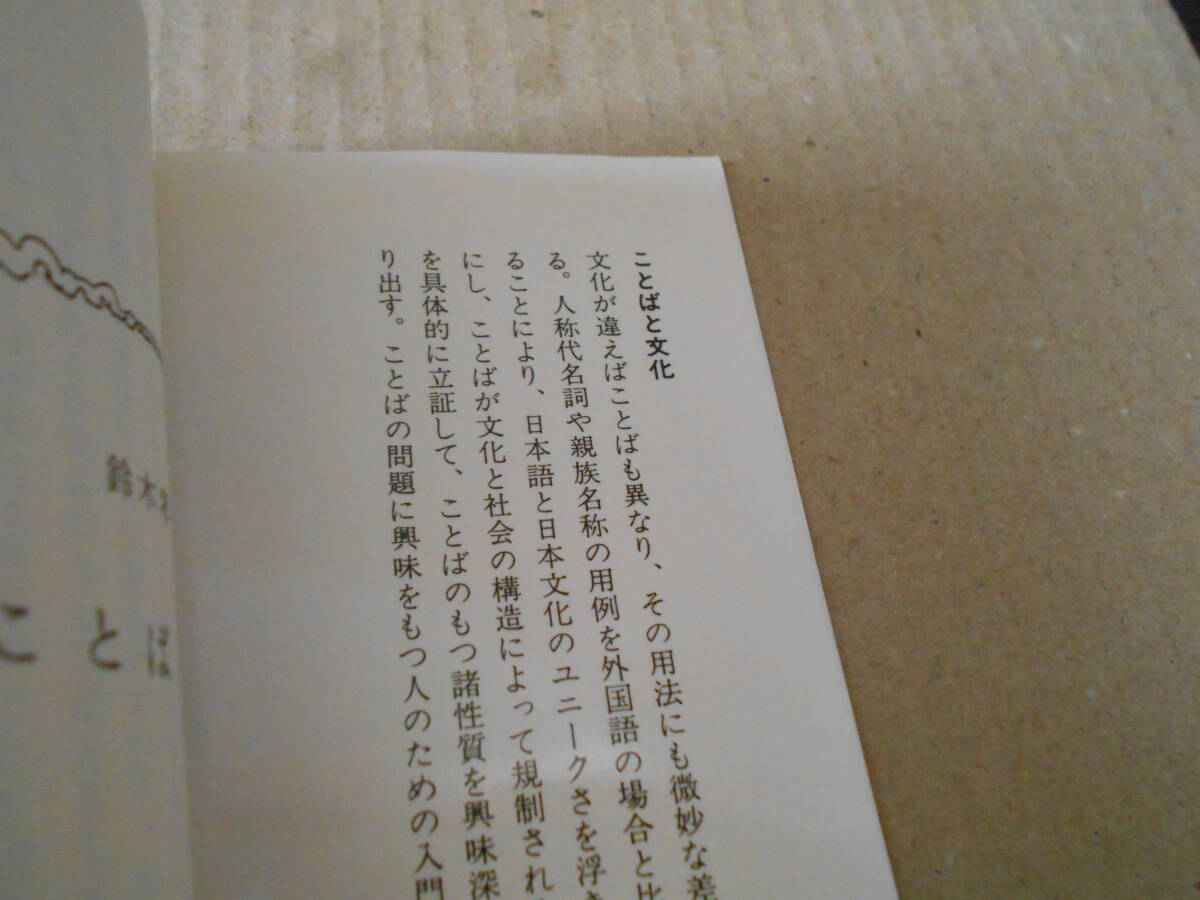 ことばと文化
文化が違えばことばも異なり、その用法にも微妙な差
る。人称代名詞や親族名称の用例を外国語の場合と比
ることにより、日本語と日本文化のユニークさを浮き
にし、ことばが文化と社会の構造によって規制され
を具体的に立証して、ことばのもつ諸性質を興味深
り出す。ことばの問題に興味をもつ人のための入門
鈴木
ことば